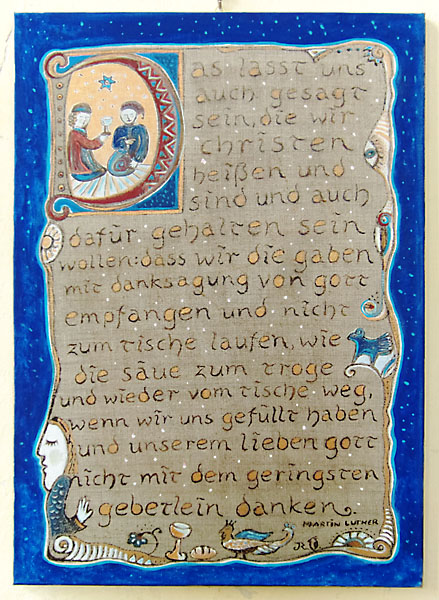 Das lasst uns
auch gesagt
sein, die wir
christen
heißen und
sind und auch
dafür gehalten sein
wollen: dass wir die gaben
mit danksagung von gott
empfangen und nicht
zum tische laufen, wie
die säue zum troge
und wieder vom tische weg,
wenn wir uns gefüllt haben
und unserem lieben gott
nicht mit dem geringsten
gebetlein danken.
MARTIN LUTHER